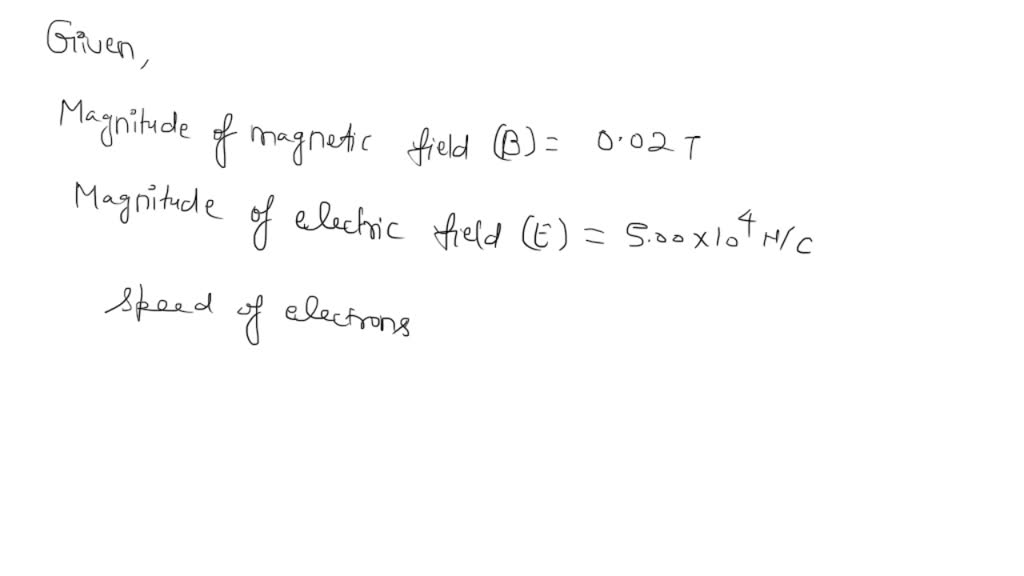 Given,
Magnitude of magnetic field (B) = 0.02 T
Magnitude of electric field (E) = 5.00 × 10⁴ N/C
Speed of electrons